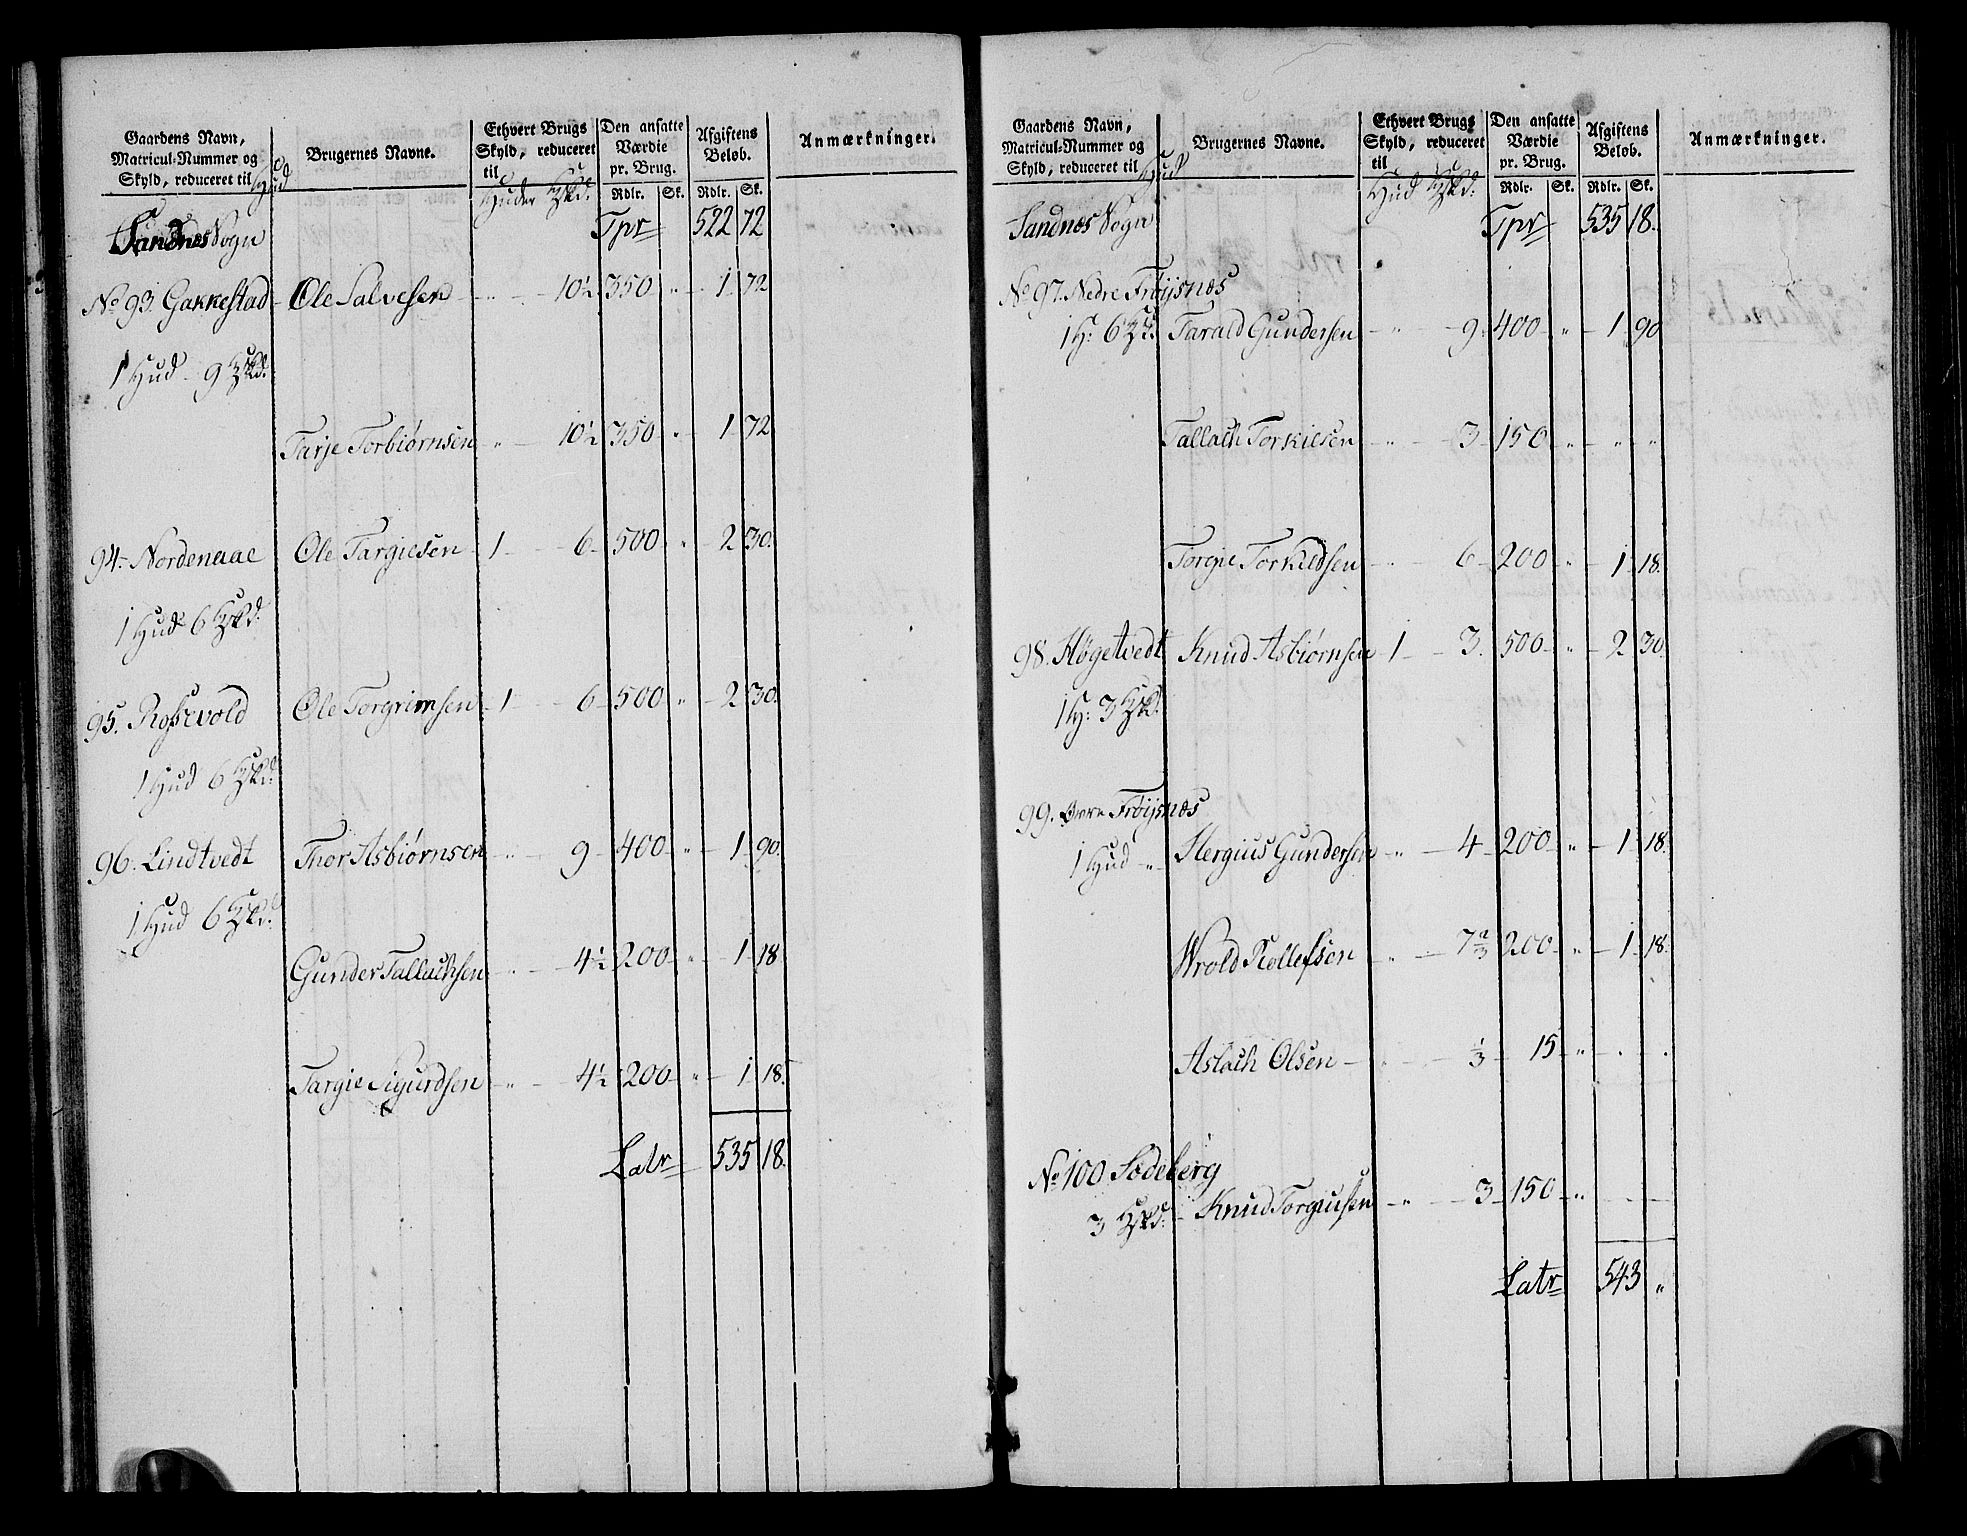 Gaardens Navn, Matricul-Nummer og Skyld, reduceret til Hud | Brugernes Navne. | Ethvert Brugs Skyld, reduceret til Huder | Den ansatte Værdie pr. Brug. Rdlr. Sk. | Afgiftens Beløb. Rdlr. Sk. | Anmærkninger.
Sandnes Sogn Tpr 522 72
No 93. Gakkestad Ole Salvesen " 10½ 350 " 1 72
1 Hud 9
Tarje Torbiørnsen " 10½ 350 " 1 72
94 Nordenaae Ole Targiesen 1 6 500 " 2 30.
1 Hud 6
95. Rossevold Ole Torgrimsen 1 6 500 " 2 30.
1 Hud 6
96. Lindtvedt Thor Asbiørnsen " 9 400 " 1 90.
1 Hud 6
Gunder Tallachsen " 4½ 200 " 1 18
Targie Sigurdsen " 4½ 200 " 1 18.
Latr 535 18.
Gaardens Navn, Matricul-Nummer og Skyld, reduceret til Hud | Brugernes Navne. | Ethvert Brugs Skyld, reduceret til Hud | Den ansatte Værdie pr. Brug. Rdlr. Sk. | Afgiftens Beløb. Rdlr. Sk. | Anmærkninger.
Sandnes Sogn Tpr 535 18.
No 97. Nedre Frøijsnæs
1 H: 6 Tarald Gundersen " 9 400 " 1 90
Tallach Torkilsen " 3 150 " " "
Torgie Torkildsen " 6 200 " 1 18.
98. Høgetvedt Knud Asbiørnsen 1 3. 500 " 2 30.
1 H: 3
99. Øvre Frøijsnæs
1 Hud " Stergius Gundersen " 4 200 " 1 18.
Wrold Rollefsen " 7⅔ 200 " 1 18.
Aslach Olsen " ⅓ 15 "
No 100 Sødeberg
3 Knud Torgiusen " 3 150 "
Latr 543 "